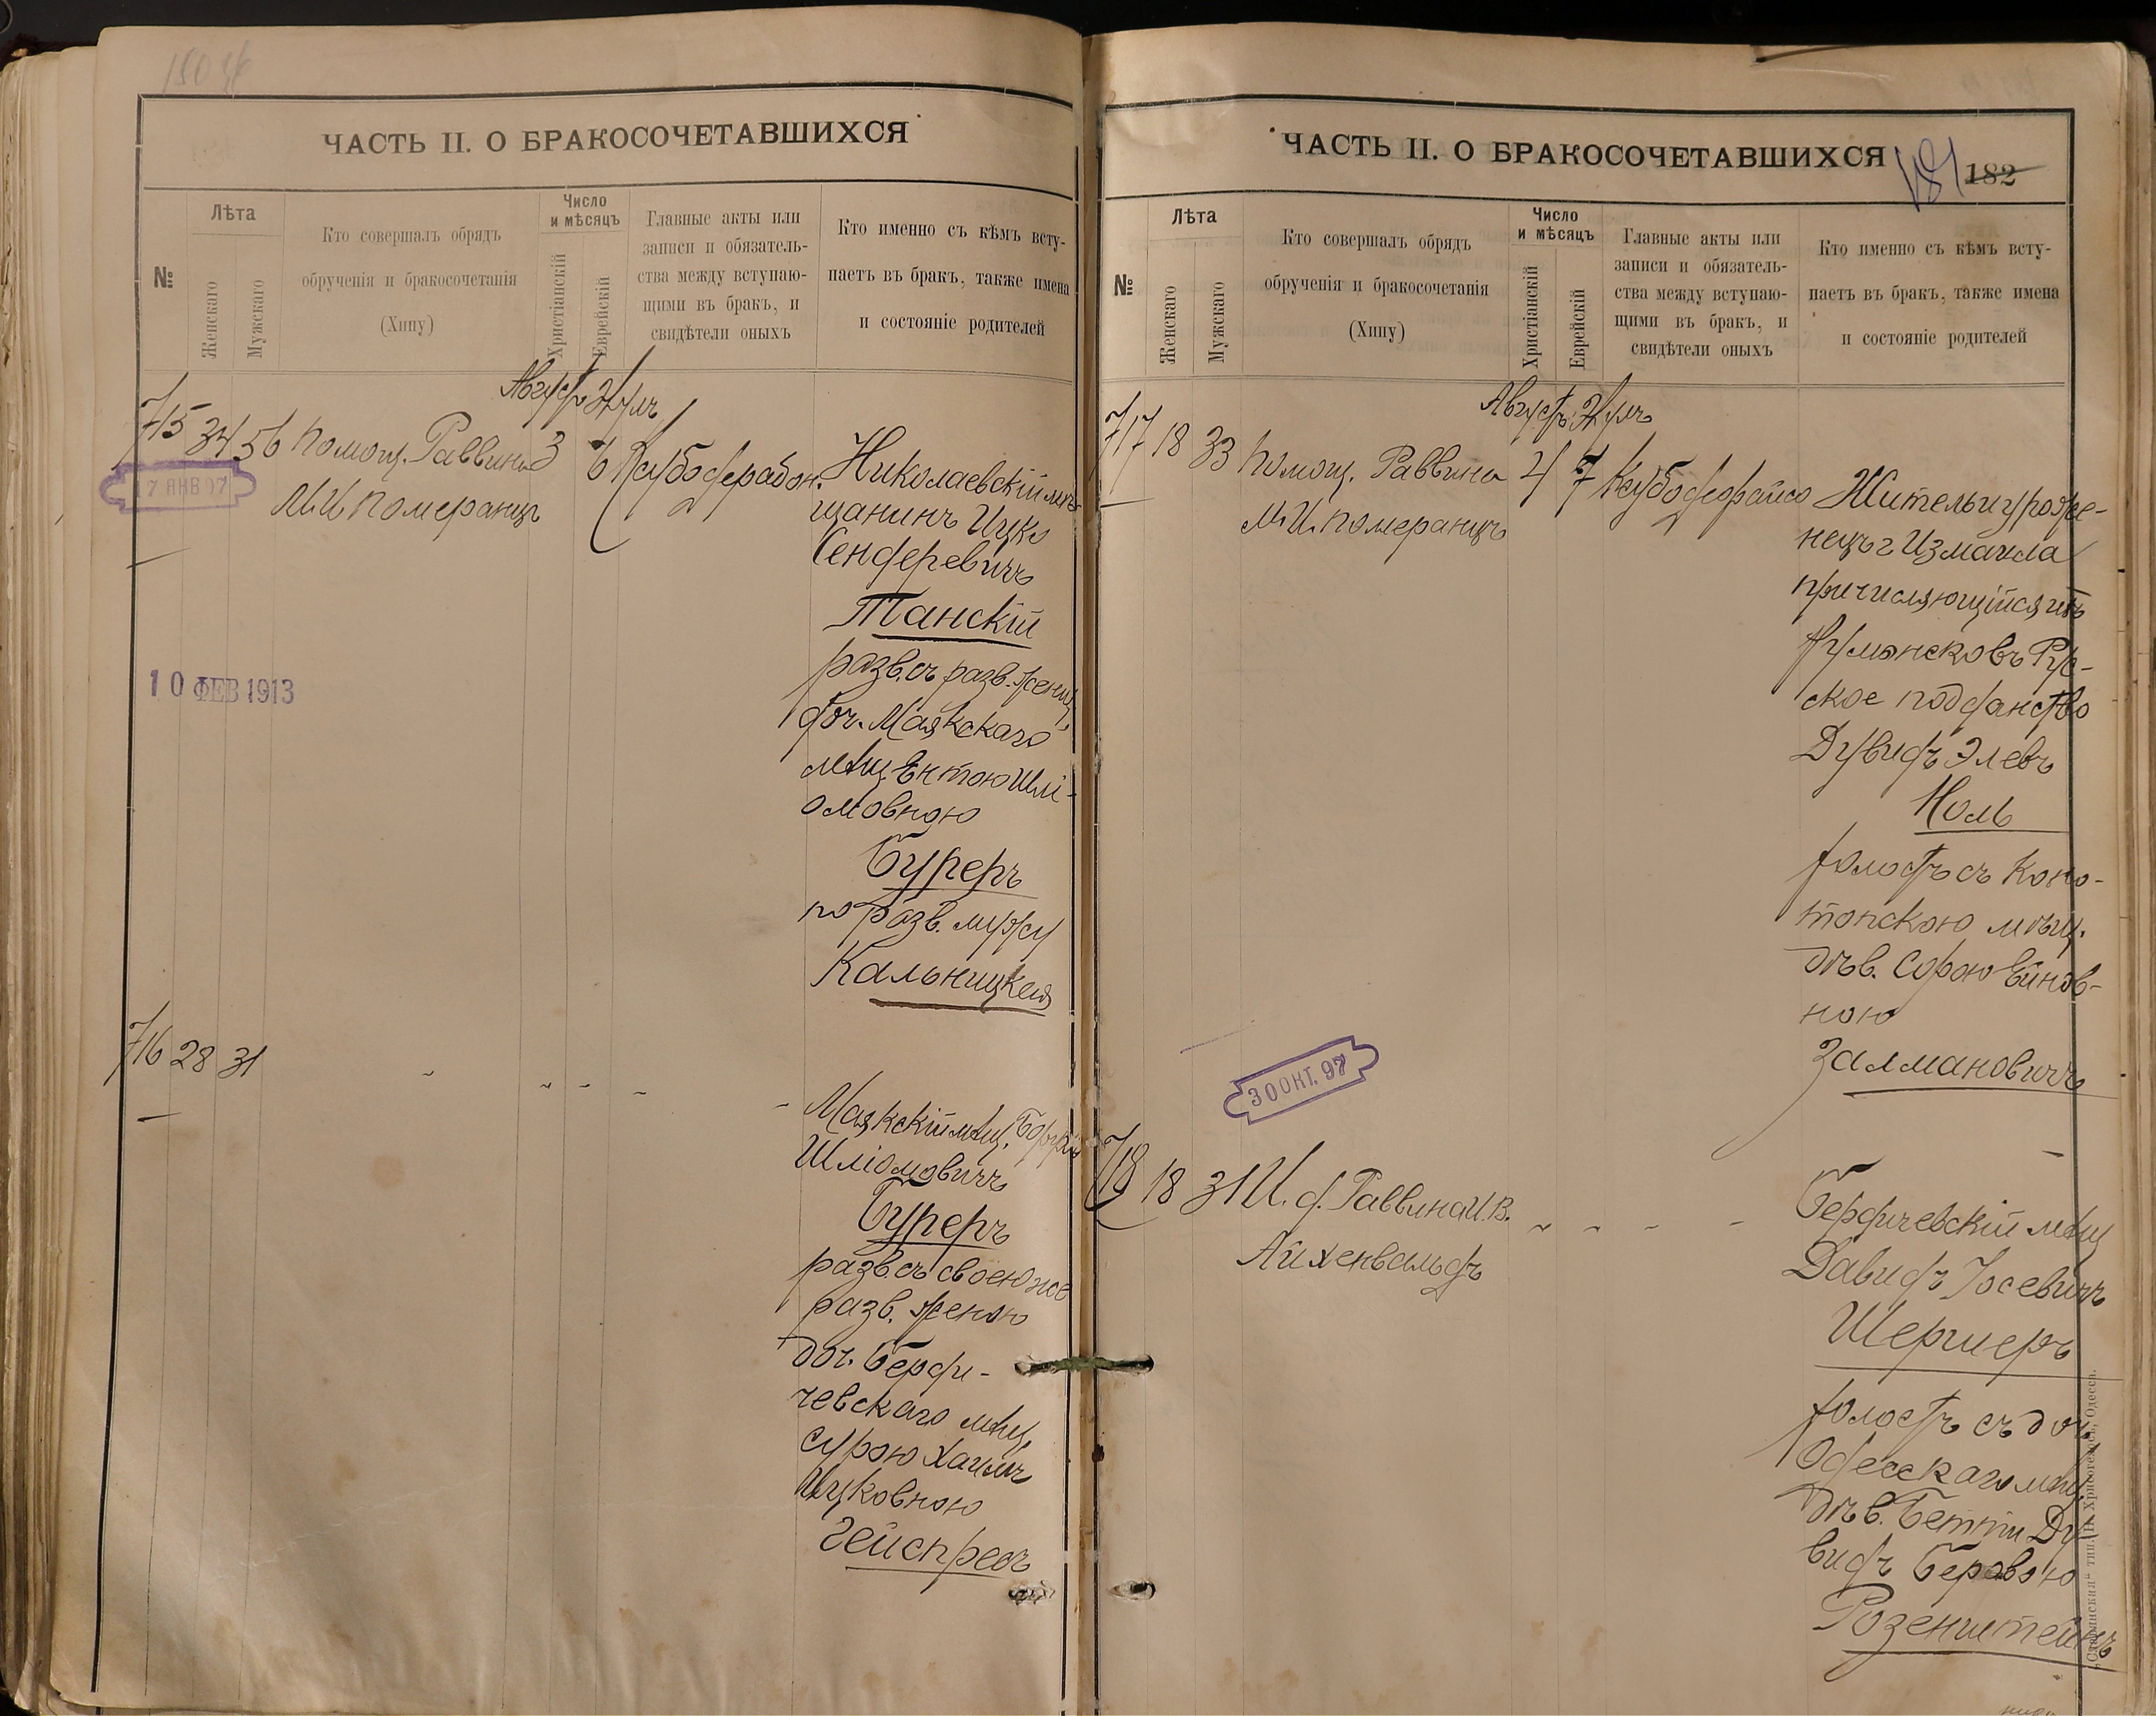 ЧАСТЬ II. О БРАКОСОЧЕТАВШИХСЯ
№
Лѣта
Женскаго
Мужскаго
Кто совершалъ обрядъ
обрученія и бракосочетанія
(Хипу)
Число
и мѣсяцъ
Христіанскій
Еврейскій
Главные акты или
записи и обязатель-
ства между вступаю-
щими въ бракъ, и
свидѣтели оныхъ
Кто именно съ кѣмъ всту-
паетъ въ бракъ, также имена
и состояніе родителей
Августъ
715 34 56 Помощ. Раввина 3 6
М. И. Померанцъ
10 ФЕВ 1913
Николаевскій мѣ-
щанинъ Ицко
Сендеревичъ
Танскій
разв. съ разв. женщ.
доч. Маякскаго
мѣщ. Ентою Шлі-
омовною
Буреръ
по разв. мужу
Кальницкая
716 28 31
Маякскій мѣщ.
Шліомовичъ
Буреръ
разв. съ своею же
разв. женою
доч. Берди-
чевскаго мѣщ.
Сурою Хаимъ
Ицковною
Гейспресъ
ЧАСТЬ II. О БРАКОСОЧЕТАВШИХСЯ
181
182
№
Лѣта
Женскаго
Мужскаго
Кто совершалъ обрядъ
обрученія и бракосочетанія
(Хипу)
Число
и мѣсяцъ
Христіанскій
Еврейскій
Главные акты или
записи и обязатель-
ства между вступаю-
щими въ бракъ, и
свидѣтели оныхъ
Кто именно съ кѣмъ всту-
паетъ въ бракъ, также имена
и состояніе родителей
Августъ
717 18 33 Помощ. Раввина 4 7
М. И. Померанцъ
Житель и уроже-
нецъ г Измаила
причисляющійся изъ
Румынсковъ Рус-
ское подданство
Дувидъ Элевъ
Ноль
холостъ съ Коно-
топскою мѣщ.
дѣв. Сурою Ейнов-
ною
Залмановичъ
30 ОКТ. 97
718 18 31 И. д. Раввина И. В.
Айхенвальдъ
Бердичевскій мѣщ
Давидъ Іосевичъ
Шерщеръ
холостъ съ доч.
Одесскаго мѣщ.
дѣв. Бетти Ду-
видъ Беровою
Розенштейнъ
„Славянская“ тип. Н. Хрисогелосъ, Одесса.